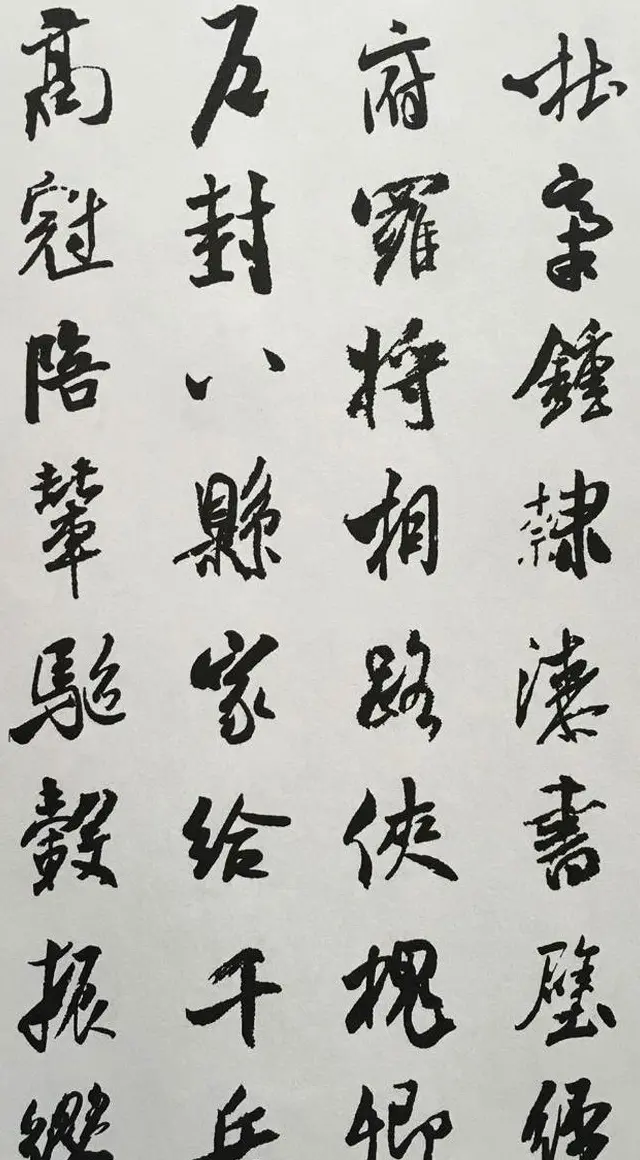 杜稾鍾隸漆書壁經
府羅將相路俠槐卿
戶封八縣家給千兵
高冠陪輦驅轂振纓